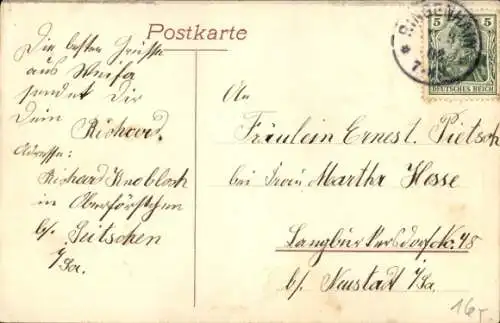 Postkarte
Die besten Grüsse
aus Weifa
sendet Dir
Dein
Richard.
Adresse:
Richard Knobloch
in Oberförstchen
b/. Seitschen
i/Sa.
An
Fräulein Ernest. Pietsch
bei Frau Martha Hesse
Langburkersdorf No. 48
b/. Neustadt i/Sa.
5 5
DEUTSCHES REICH
16,-